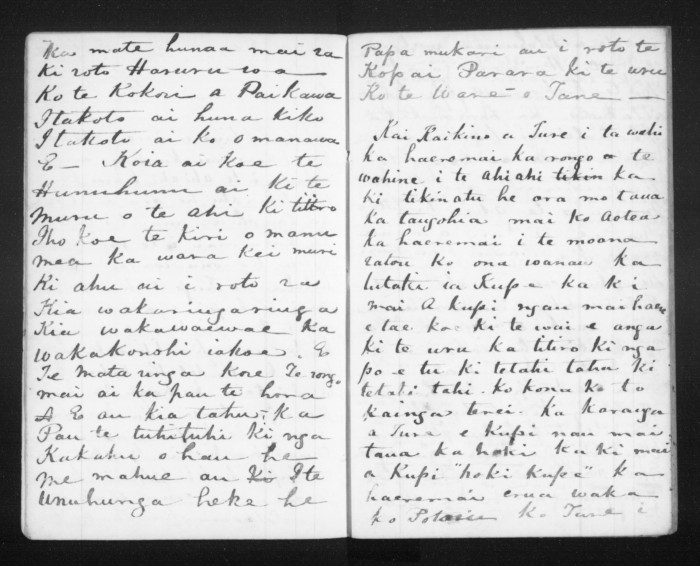 Ka mate hunaa mai ra
ki roto Haruru wa
Ko te Kokori a Paikawa
Itakoto ai huna kiko
Itakoto ai ko omanawa
E - Koia ai koe te
Hunuhunu ai ki te
muru o te ahi ki titiro
Iho koe te kiri o manu
mea ka wara kei muri
Ki ahu ai i roto ra
Kia wakaringaringa
Kia wakawaewae ka
wakakonohi iakoe. E
Te mata unga koe Te rongo
mai ai ka pau te hora
E au kia tahu. Ka
Pau te tuhituhi ki nga
Kakahu o hau he
me mahue au Ki Ite
Unuhunga heke he
Papa mukari au i roto te
Kopai Parara ki te uru
Ko te Ware - o Tane
Kai Raikino a Ture i ta wahi
ka haeremai ka rongo te
wahine i te ahiahi tikin ka
ki tikinatu he ora mo taua
ka taugohia mai ko Aotea
ka haeremai i te moana
ratou ko ona wanau ka
tutaku ia Kupe ka ki
mai A Kupi ngau mai haere
e tae koe ki te wai e anga
ki te uru ka titiro ki nga
po e tu ki tetahi taha ki
tetahi tahi. ko kona ko to
kainga terei. ka karanga
a Ture e Kupi nau mai
taua ka hoki ka ki mai
a Kupi "hoki Kupe" ka
haeremai erua waka
ko ko Ture i